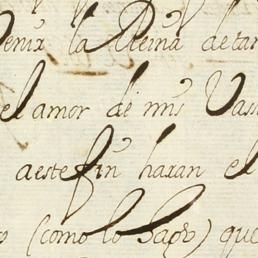 venir la Reina de tan
el amor de mis Vass
a este fin haran el
(como lo hago) que